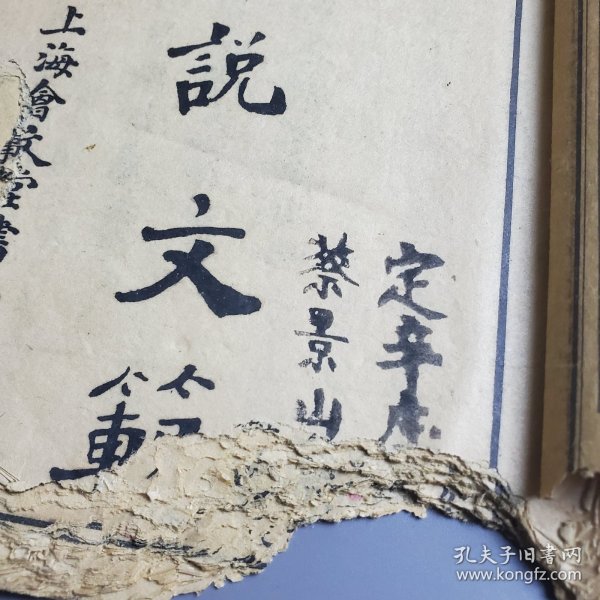 定
蔡景山
說文範
上海會文堂書
孔夫子旧书网
www.kongfz.com